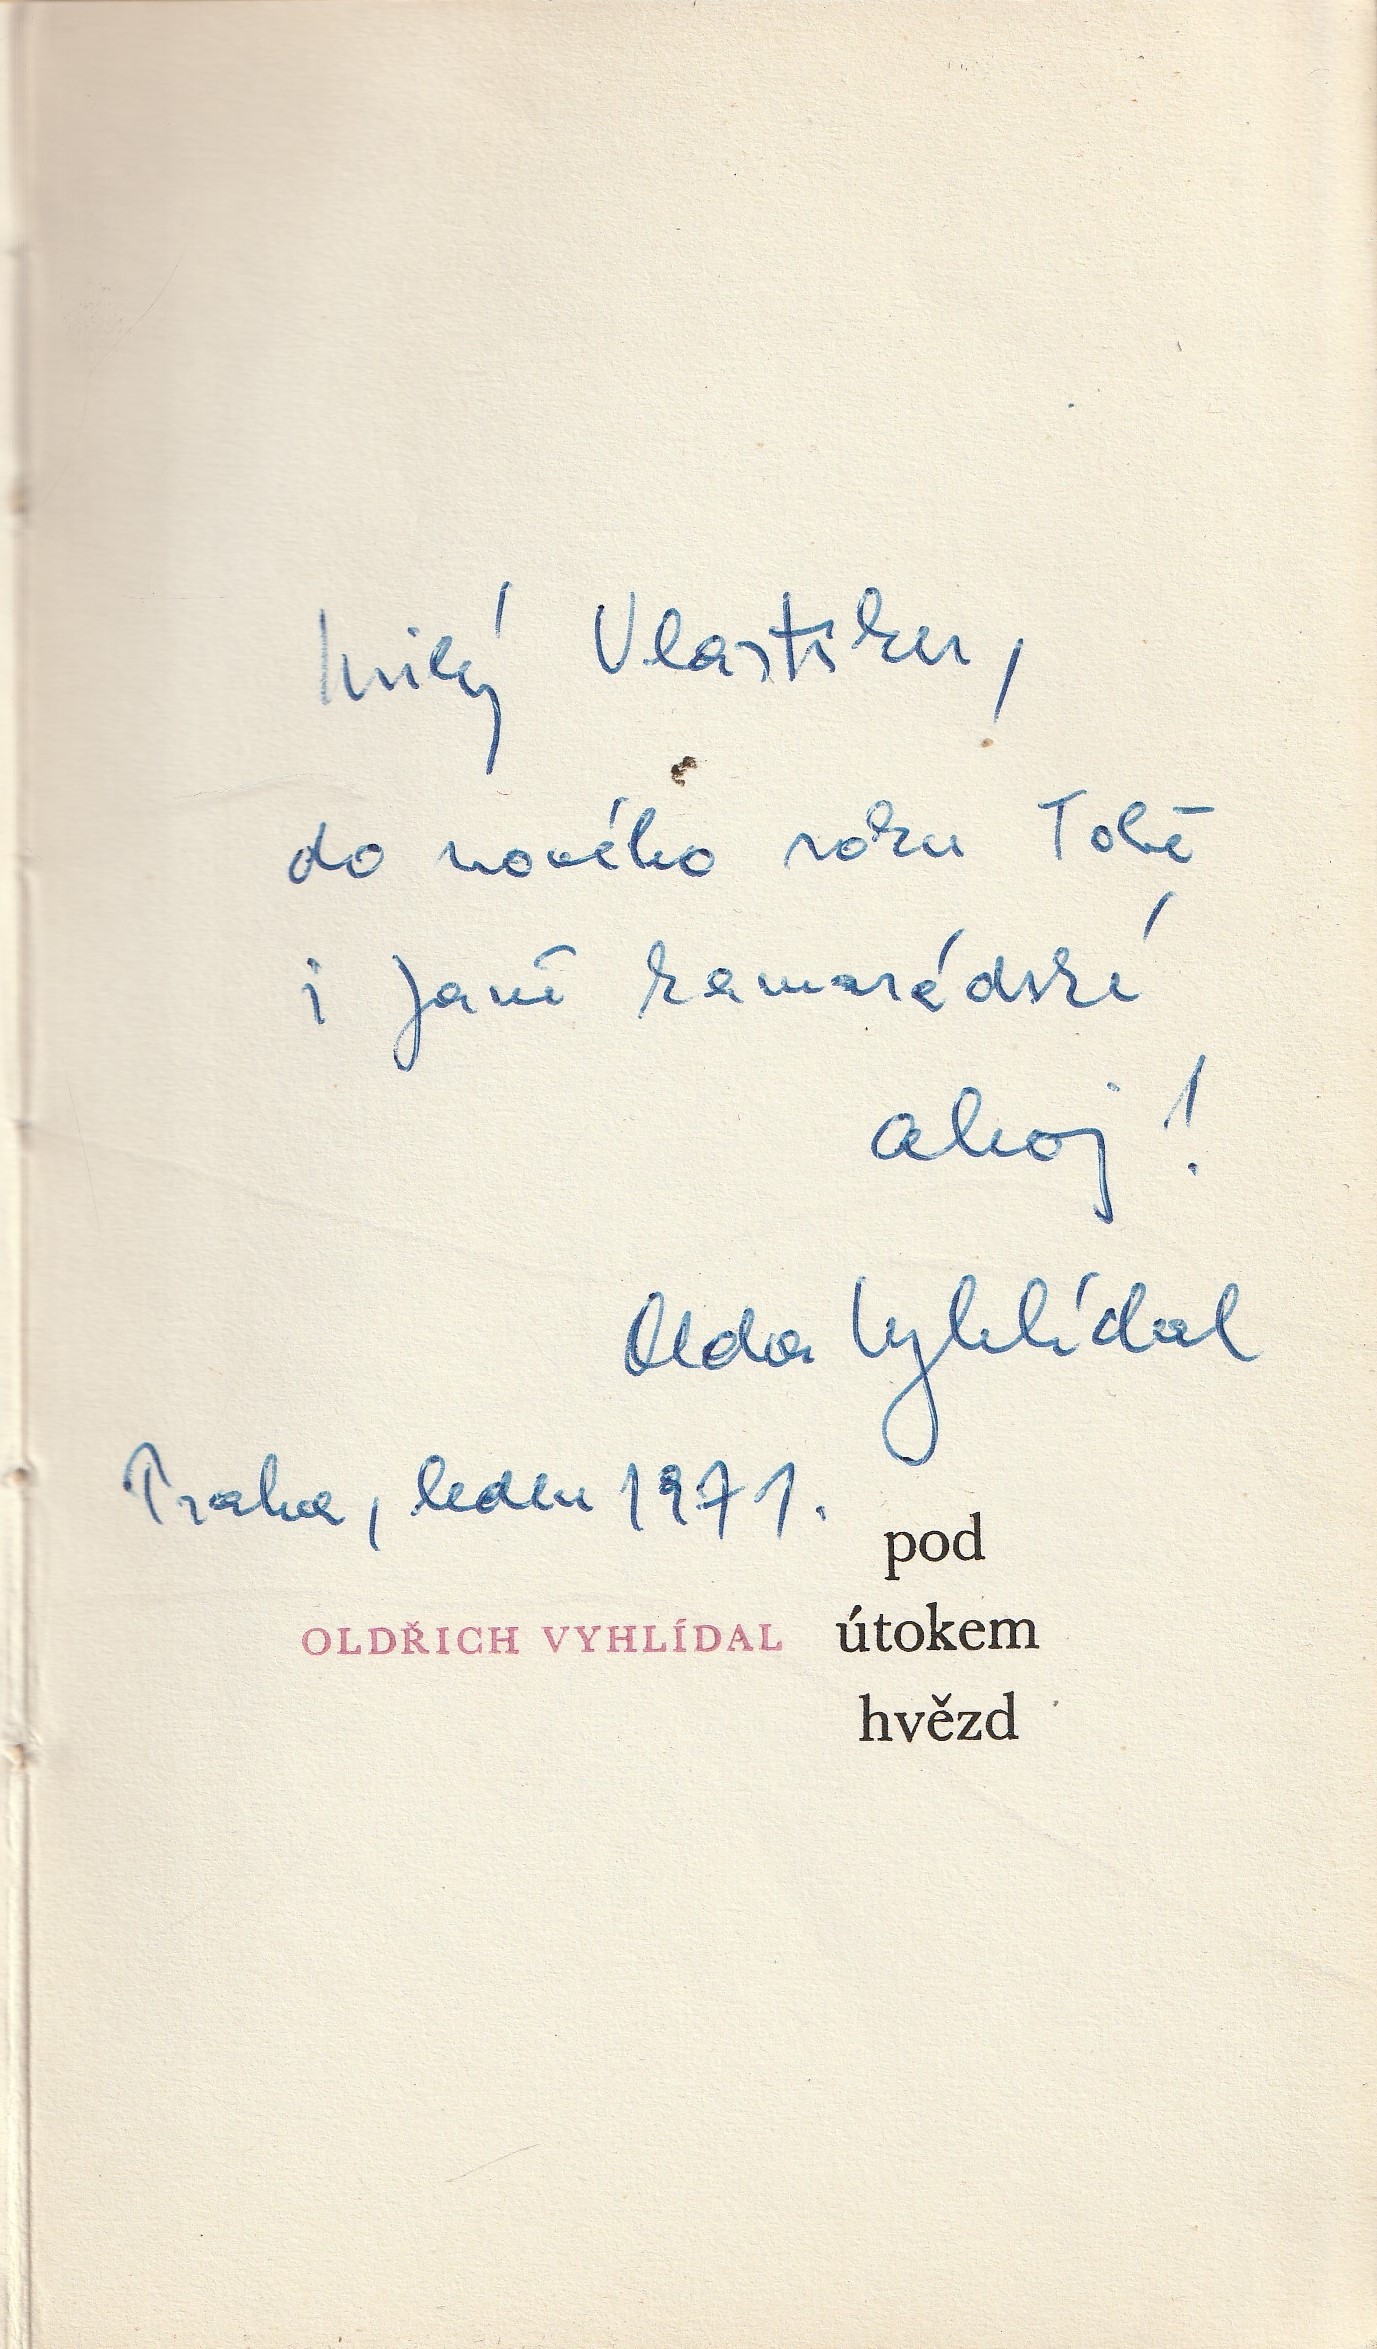 milý Vlastíku,
do nového roku Tobě
i Janě kamarádské
ahoj!
Olda Vyhlídal
Praha, leden 1971.
pod
OLDŘICH VYHLÍDAL útokem
hvězd